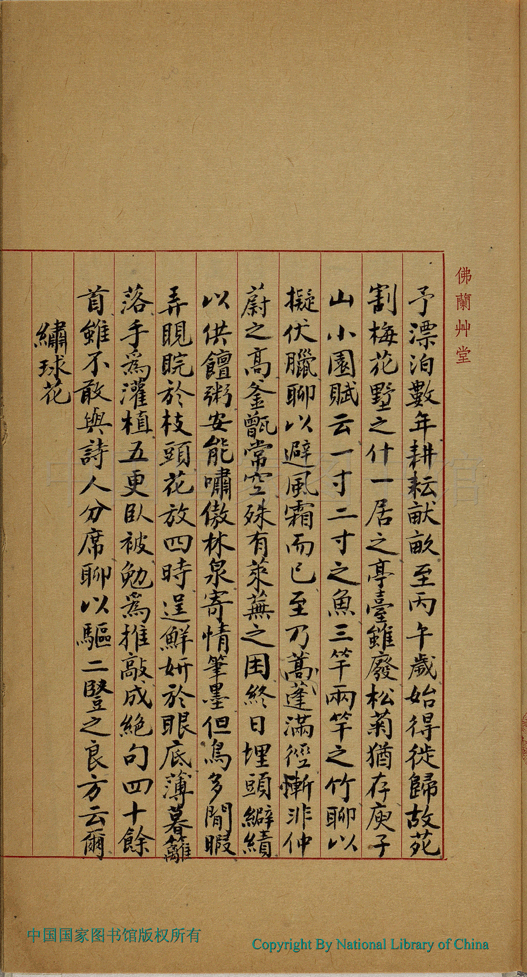 佛蘭艸堂
予漂泊數年耕耘畎畝至丙午歲始得徙歸故苑
割梅花墅之什一居之亭臺雖廢松菊猶存庾子
山小園賦云一寸二寸之魚三竿兩竿之竹聊以
擬伏臘聊以避風霜而已至乃蒿蓬滿徑慚非仲
蔚之高釜甑常空殊有萊蕪之困終日埋頭緶績
以供饘粥安能嘯傲林泉寄情筆墨但鳥多閒暇
弄睍睆於枝頭花放四時逞鮮妍於眼底薄暮籬
落手爲灌植五更臥被勉爲推敲成絶句四十餘
首雖不敢與詩人分席聊以驅二豎之良方云爾
繡球花
中国国家图书馆版权所有
Copyright By National Library of China